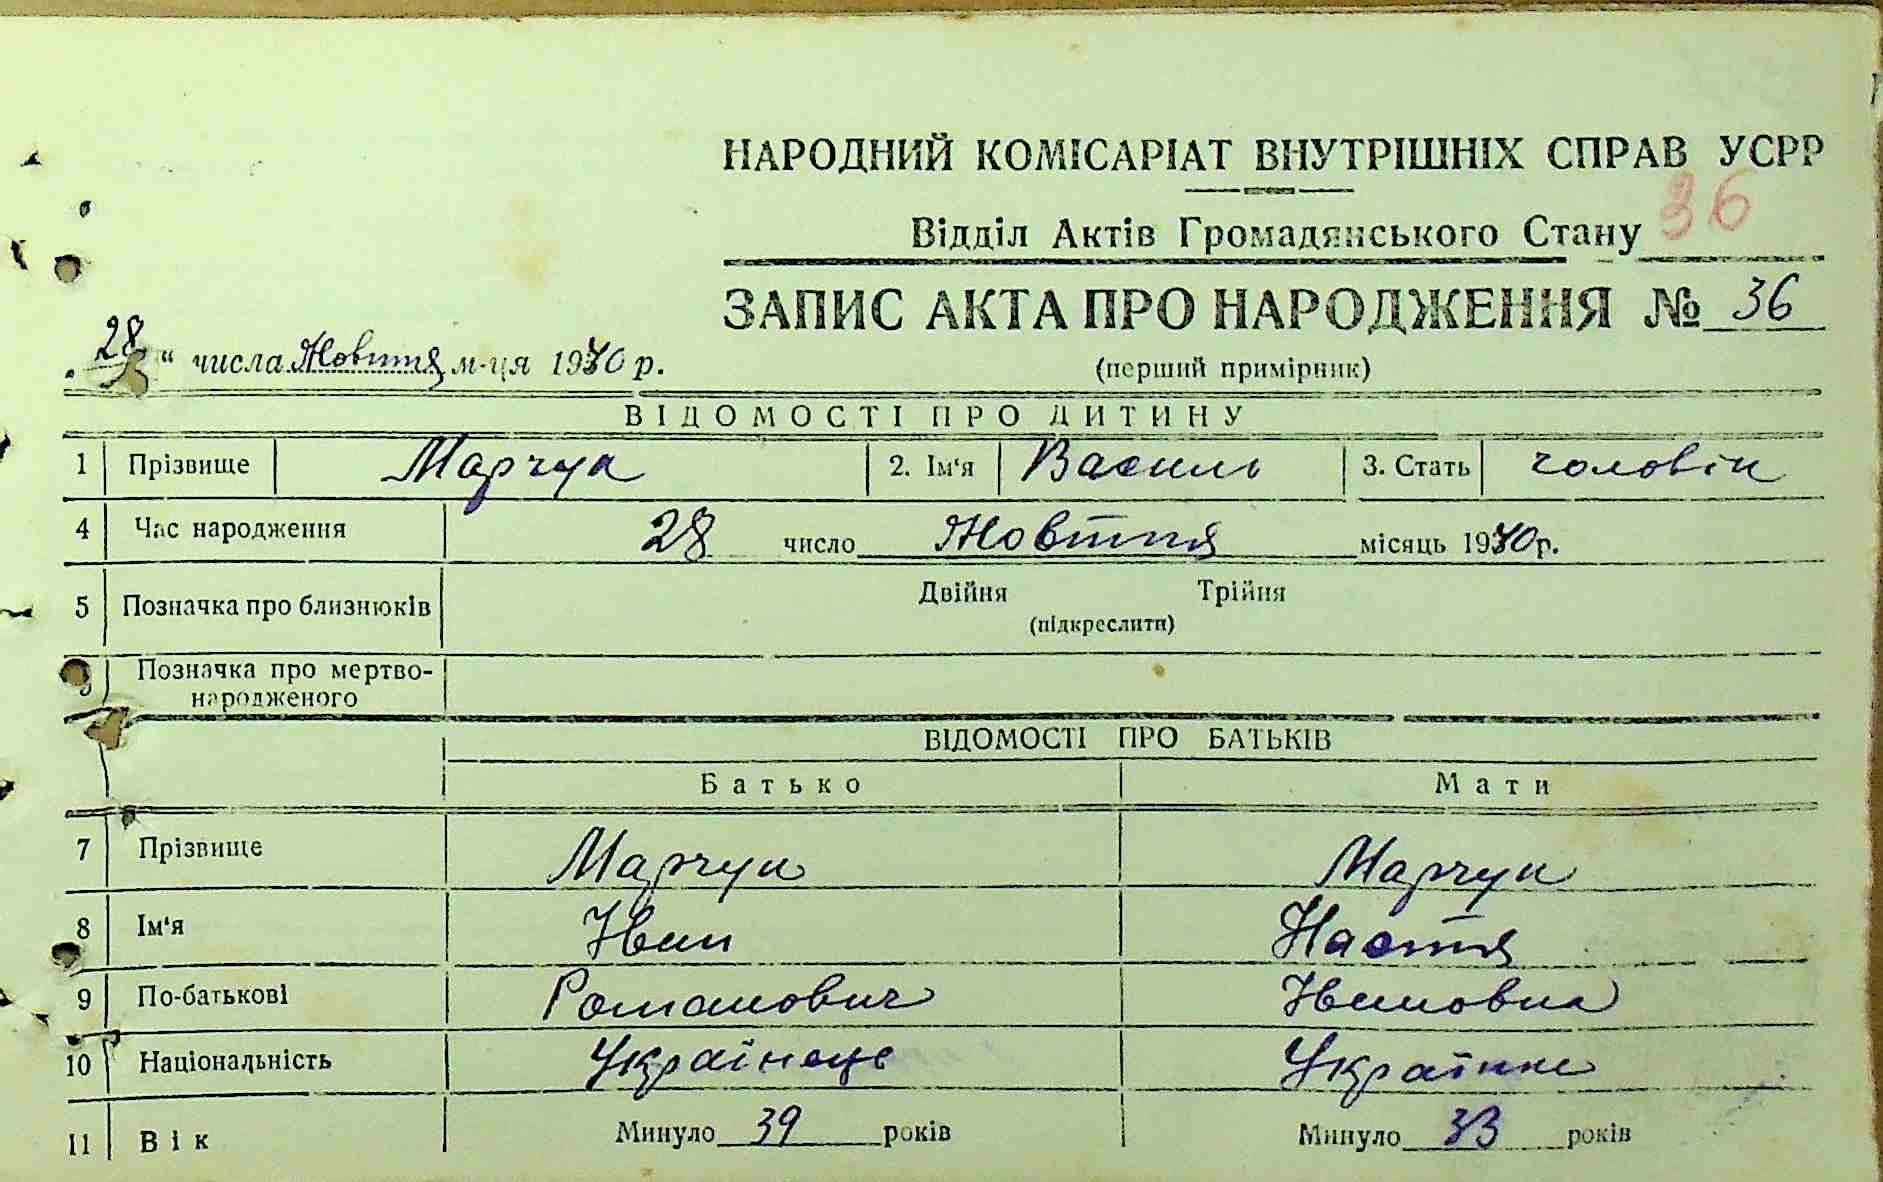 НАРОДНИЙ КОМІСАРІАТ ВНУТРІШНІХ СПРАВ УСРР
36
Відділ Актів Громадянського Стану
ЗАПИС АКТА ПРО НАРОДЖЕННЯ № 36
(перший примірник)
„28“ числа Жовтня м-ця 1940 р.
ВІДОМОСТІ ПРО ДИТИНУ
1 Прізвище Марчук 2. Ім'я Василь 3. Стать чоловік
4 Час народження 28 число Жовтня місяць 1940 р.
5 Позначка про близнюків Двійня Трійня
(підкреслити)
6 Позначка про мертво-
народженого
ВІДОМОСТІ ПРО БАТЬКІВ
Батько Мати
7 Прізвище Марчук Марчук
8 Ім'я Іван Настя
9 По-батькові Романович Івановна
10 Національність Українець Українка
11 Вік Минуло 39 років Минуло 33 років